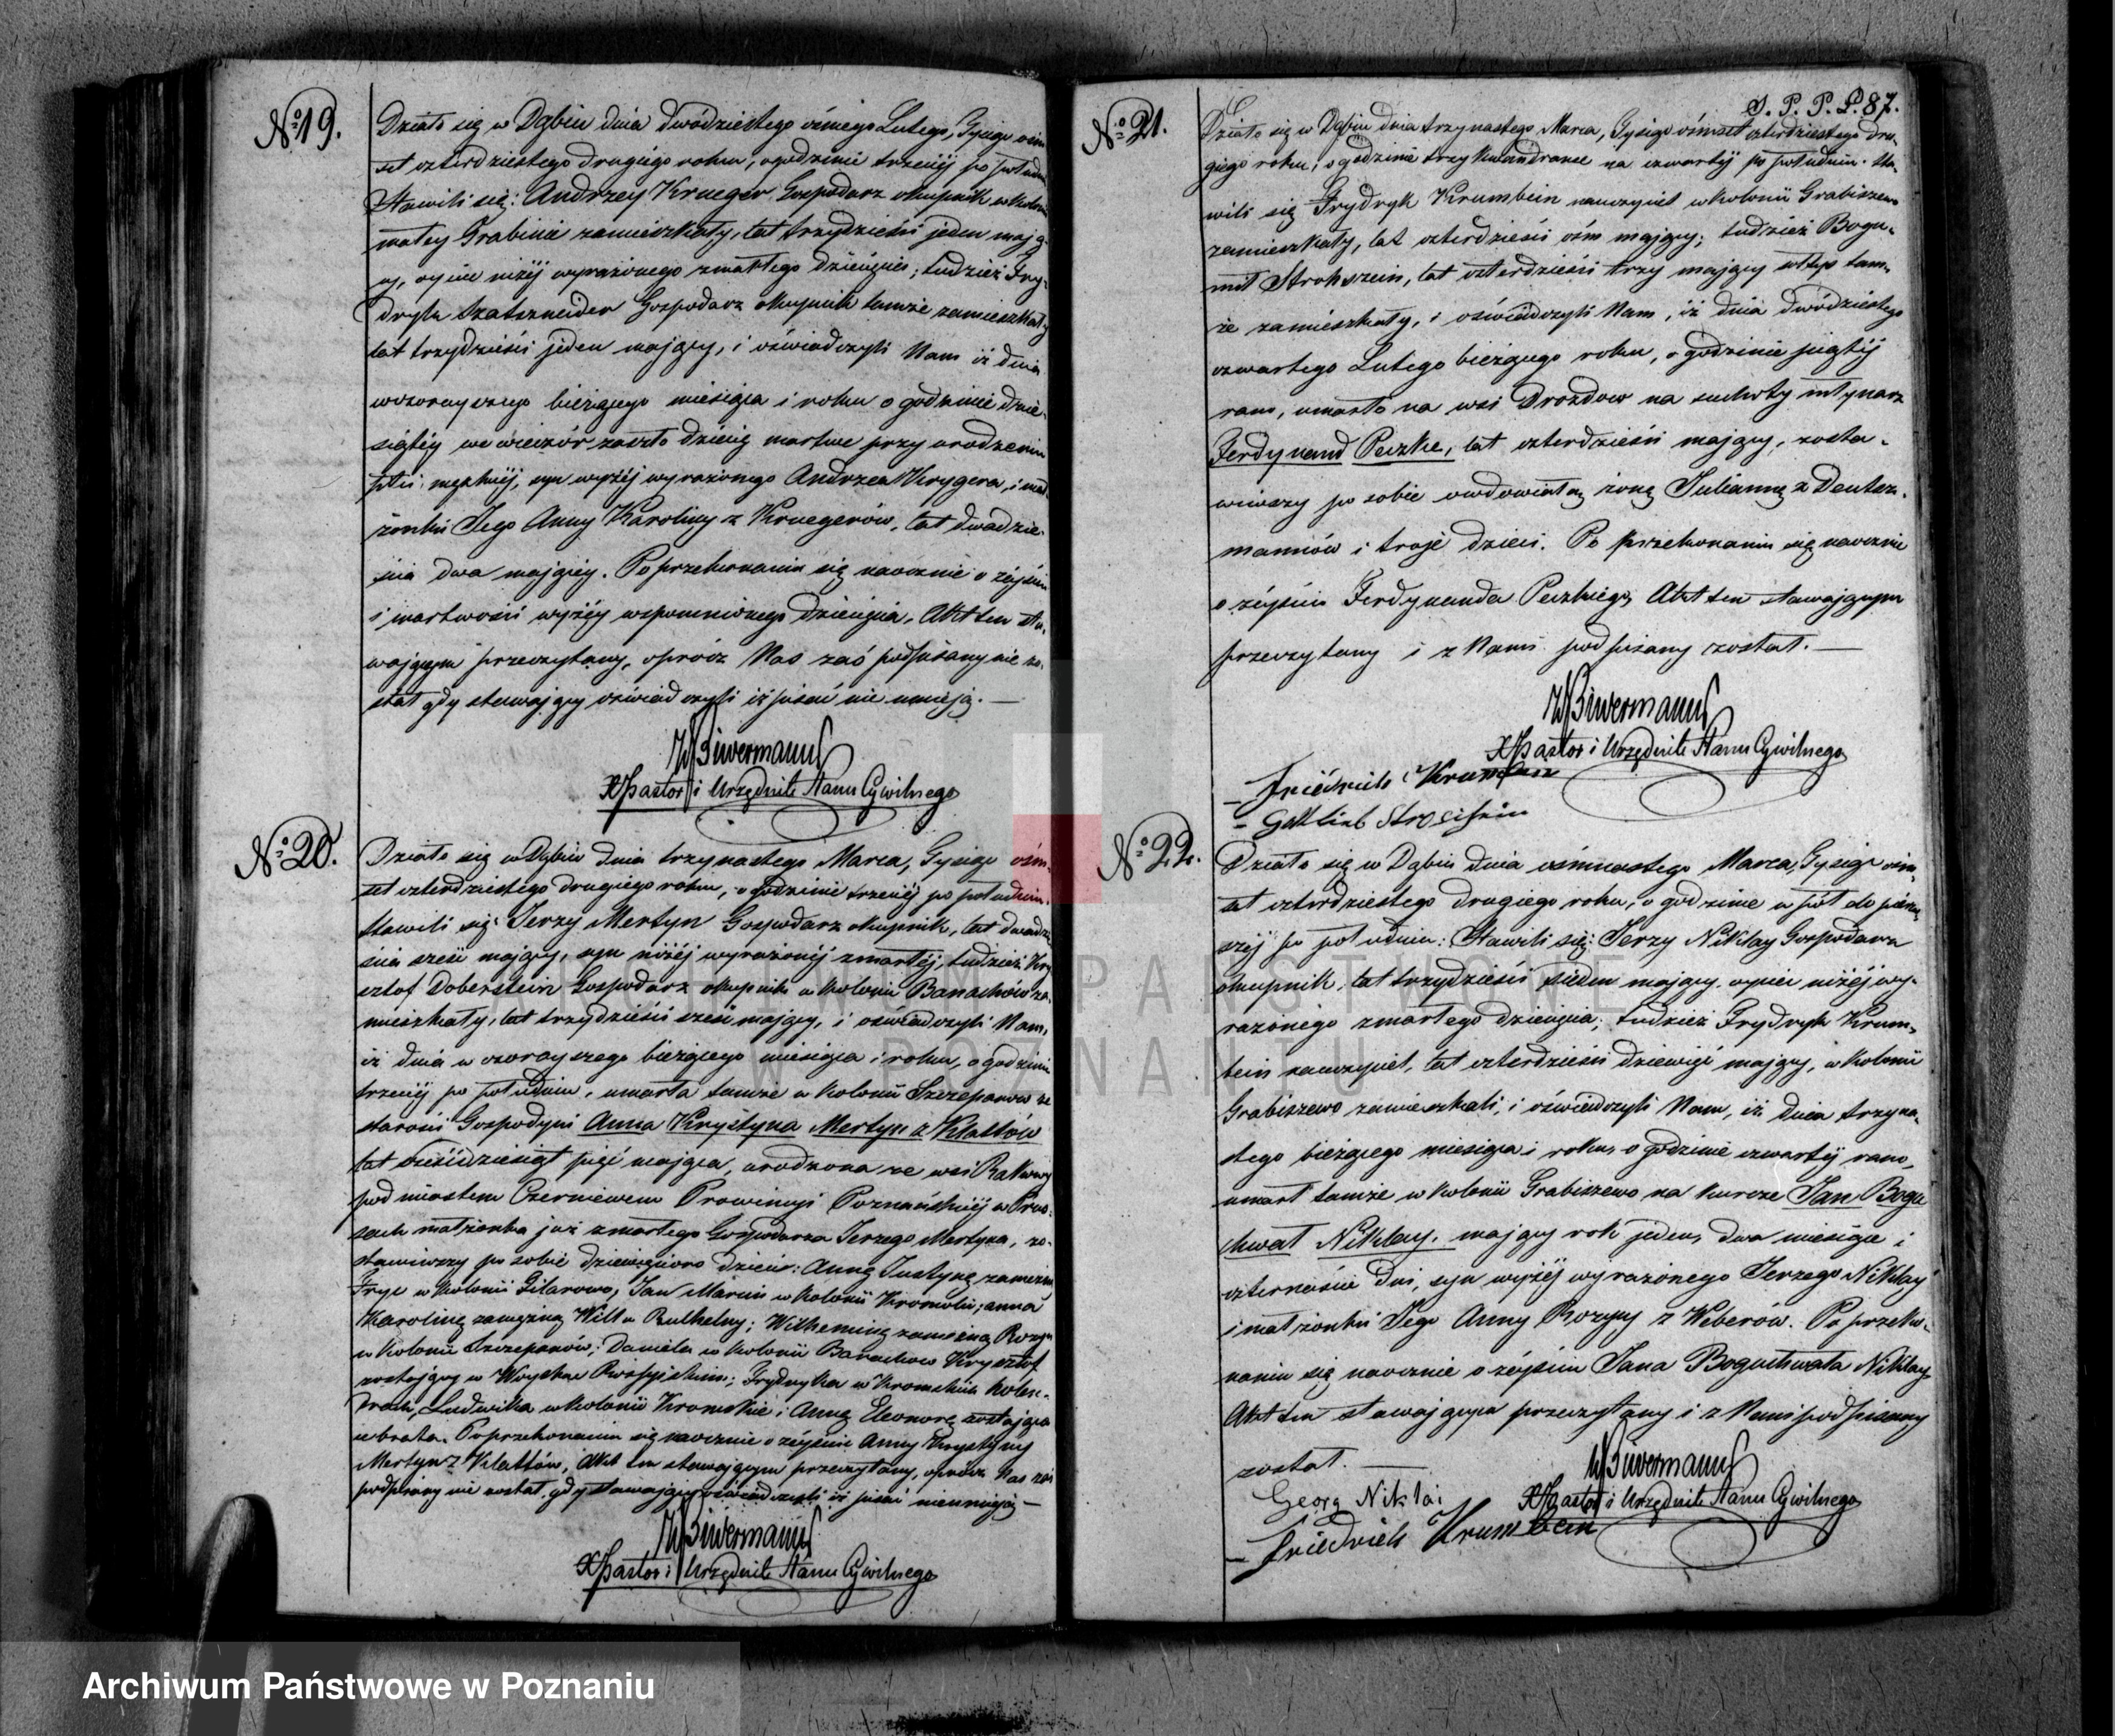 No 19.
Działo się w Dąbiu dnia dwódziestego ósmego Lutego, Tysiąc ośm
set czterdziestego drugiego roku, o godzinie trzeciéj po południu
Stawili się: Andrzey Krueger Gospodarz okupnik w kolonii
małey Grabinie zamieszkały, lat trzydzieści jeden mają-
cy, oyciec niżéj wyrażonego zmarłego dziecięcia; tudzież Fry-
dryk Szatsznaider Gospodarz okupnik tamże zamieszkały
lat trzydzieści jeden mający, i oświadczyli Nam iż dnia
wczorayszego bieżącego miesiąca i roku o godzinie dzie-
siątéy we wieczór zeszło dziecię martwe przy urodzeniu
płci męskiéj, syn wyżéj wyrażonego Andrzea Krygera, i mał-
żonki Jego Anny Karoliny z Kruegerów, lat dwadzie-
ścia dwa maiącéy. Po przekonaniu się naocznie o zéjściu
i martwości wyżéy wspomnionego dziecięcia, Akt ten sta-
waiącym przeczytany, oprócz Nas zaś podpisany nie zo-
stał gdy stawaiący oświadczyli iż pisać nie umieją. —
Biwermann
X Pastor i Urzędnik Stanu Cywilnego
No 20.
Działo się w Dąbiu dnia trzynastego Marca, Tysiąc ośm-
set czterdziestego drugiego roku, o godzinie trzeciéj po południu,
Stawili się: Jerzy Mertyn Gospodarz okupnik, lat dwadzie-
ścia sześć mający, syn niżéj wyrażonéj zmarłéj, tudzież Kry
sztof Doberstein Gospodarz okupnik w kolonii Banachów za-
mieszkały, lat trzydzieści sześć mający, i oświadczyli Nam,
iż dnia wczorayszego bieżącego miesiąca i roku, o godzinie
trzeciéj po południu, umarła tamże w kolonii Szczepanów ze
starości Gospodyni Anna Krystyna Mertyn z Klattów
lat sześćdziesiąt pięć mająca, urodzona we wsi
pod miastem Czerniewem Prowincyi Poznańskiéj w Prus-
sach małżonka już zmarłego Gospodarza Jerzego Mertyna, zo-
stawiwszy po sobie dziewięcioro dzieci: Annę Justynę zamężną
Frye w kolonii Gilarowo, Jan Marcin w kolonii Kromolin; Anna
Karolinę zamężną Wilk w; Wilheminę zamężną Rozyn
w kolonii Szczepanów; Daniela w kolonii Banachow Krysztof
zostający w Woysku Rossyiskim; Frydryka w Kromskich holen-
drach, Ludwika w kolonii Kromskie i Annę Eleonorę zostającą
u brata. Po przekonaniu się naocznie o zéjściu Anny Krystyny
Mertyn z Klattów, Akt ten stawającym przeczytany, oprócz Nas zaś
podpisany nie został, gdy stawający oświadczyli iż pisać nie umieją —
Biwermann
X Pastor i Urzędnik Stanu Cywilnego
S. P. P. P. 87.
No 21.
Działo się w Dąbiu dnia trzynastego Marca, Tysiąc ośmset czterdziestego dru-
giego roku, o godzinie trzy kwandranse na czwartą po południu. Sta-
wili się Frydryk Krumbein nauczyciel w kolonii Grabiszewo
zamieszkały, lat czterdzieści ośm mający; tudzież Bogu-
mił Strohszein, lat czterdzieści trzy mający sołtys tam-
że zamieszkały, i oświadczyli Nam, iż dnia dwódziestego
czwartego Lutego bieżącego roku, o godzinie piątéj
rano, umarł na wsi Drozdow na suchoty młynarz
Ferdynand Peczke, lat czterdzieści mający, zosta-
wiwszy po sobie owdowiałą żonę Juliannę z Deuter-
mannów i troje dzieci. Po przekonaniu się naocznie
o zéjściu Ferdynanda Peczkiego, Akt ten stawającym
przeczytany i z Nami podpisany został. —
Biwermann
X Pastor i Urzędnik Stanu Cywilnego
Friedrich Krumbein
Gottlieb Stroschein
No 22.
Działo się w Dąbiu dnia ośmnastego Marca, Tysiąc ośm-
set czterdziestego drugiego roku, o godzinie w pół do pierw
széj po południu: Stawili się: Jerzy Niklay Gospodarz
okupnik, lat trzydzieści siedem mający, oyciec niżéj wy-
rażonego zmarłego dziecięcia; tudzież Frydryk Krum-
bein nauczyciel, lat czterdzieści dziewięć mający, w kolonii
Grabiszewo zamieszkali, i oświadczyli Nam, iż dnia trzyna-
stego bieżącego miesiąca i roku, o godzinie czwartéj rano,
umarł tamże w kolonii Grabiszewo na kurcze Jan Bogu
chwał Niklay, mający rok jeden, dwa miesiące i
czternaście dni, syn wyżéj wyrażonego Jerzego Niklay
i małżonki Jego Anny Rozyny z Weberów. Po przeko-
naniu się naocznie o zéjściu Jana Boguchwała Niklay
Akt ten stawającym przeczytany i z Nami podpisany
został. —
Biwermann
X Pastor i Urzędnik Stanu Cywilnego
Georg Niklai
Friedrich Krumbein
PAŃSTWOWE
W POZNANIU
Archiwum Państwowe w Poznaniu